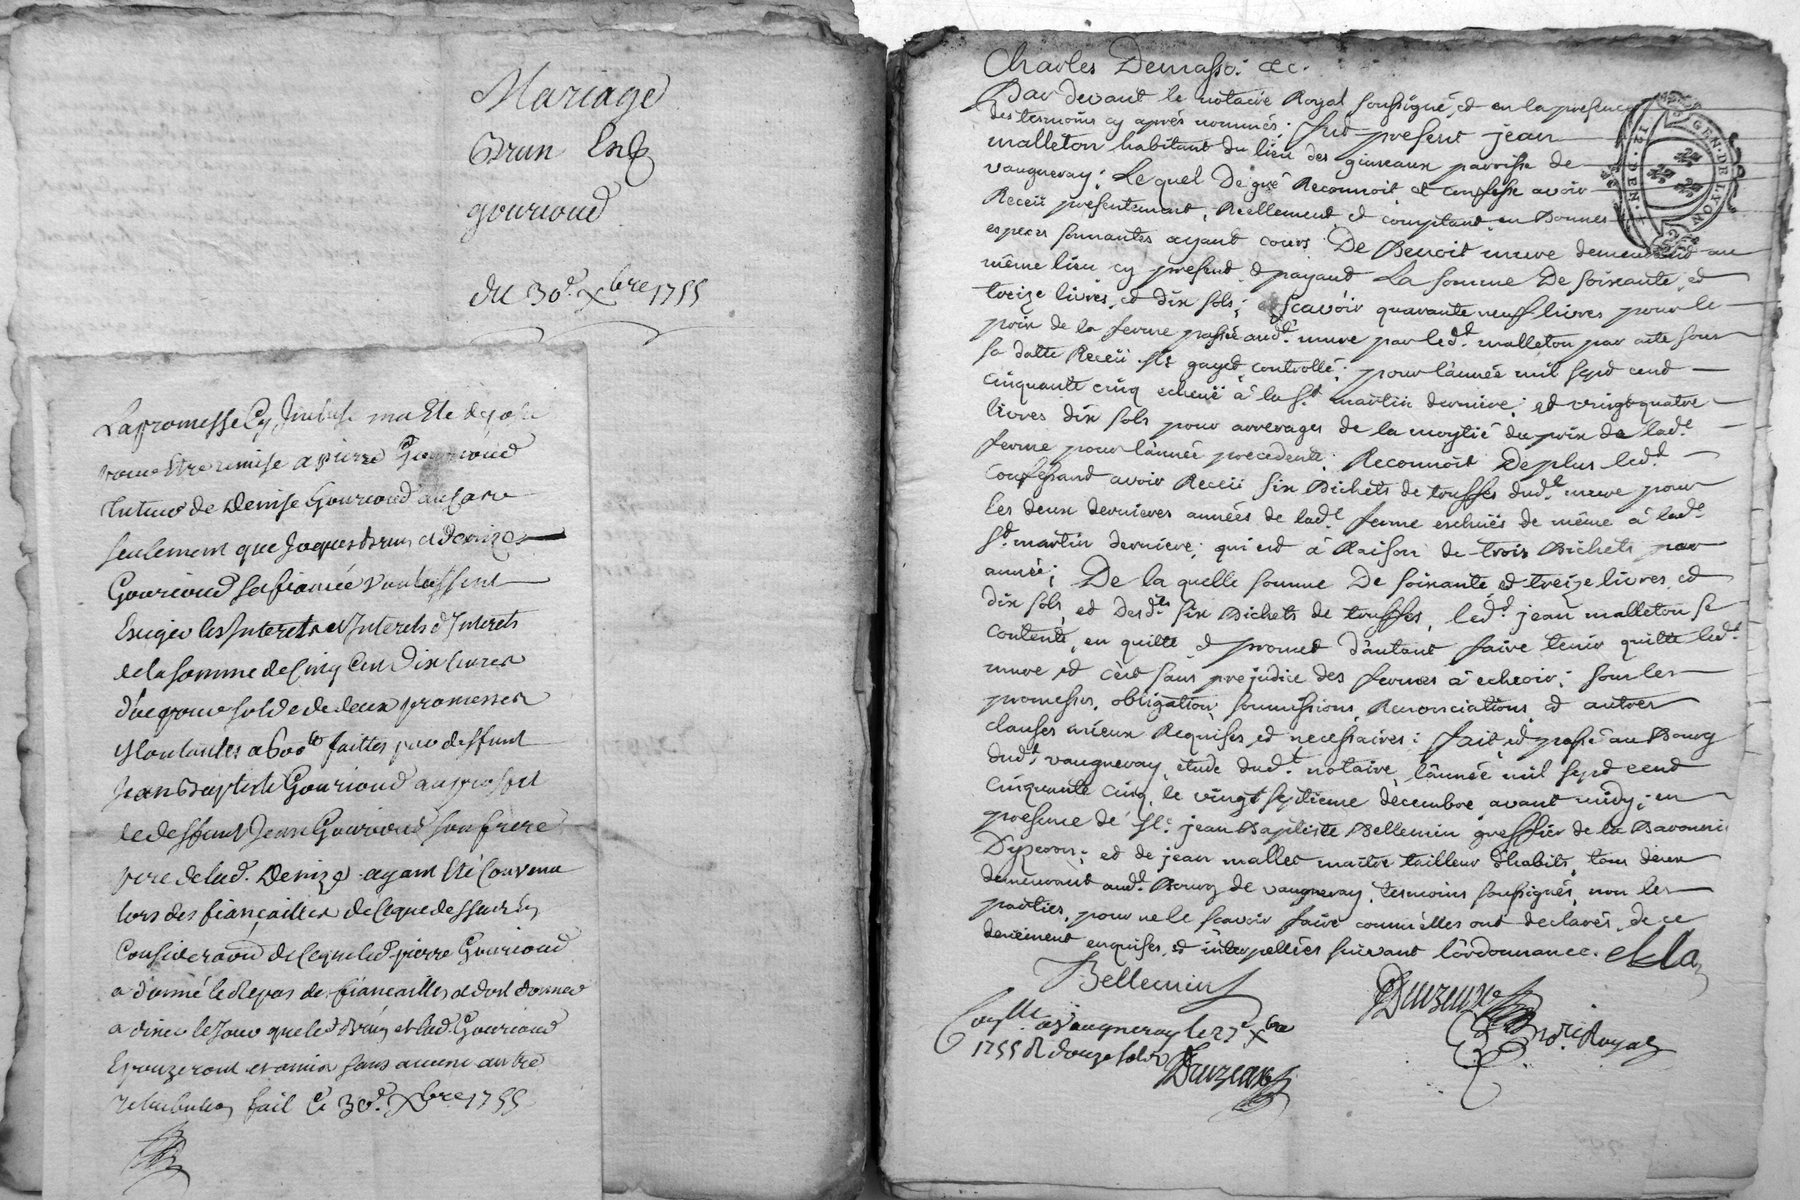 Mariage
Brun Et
gourioud
du 30e. Xbre 1755
La promesse Cy Jncluse ma Ete
pour Etre remise a pierre Gourioud
tuteur de Denise Gourioud au Cas
seulement que Jaques Brun et denize
Gourioud sa fiancée voulussent
Exiger les Jnterets et Jnterets d'Jnterets
de la somme de Cinq Cent Dix livres
due pour solde de deux promesses
Montantes a 600 lt faittes par deffunt
Jean Baptiste Gourioud au proffit
de deffunt Jean Gourioud son frere
pere de lad. Denize ayant Eté Convenu
lors des fiançailles de Ce que dessus En
Consideraon de Ce que led pierre Gourioud
a donné le Repas de fiancailles et doit donner
a diner le Jour que led Brun et lad. Gourioud
Epouzeront et amis sans aucune autre
retribution fait Ce 30e. Xbre 1755
Charles Demasso. &c.
Par devant le notaire Royal soussigné, et en la presence
des temoins cy aprés nommés; fut present jean
malleton habitant du lieu des gimeaux paroisse de
vaugneray; Lequel De gré Reconnoit et confesse avoir
Receü presentement, Reellement, et comptant en Bonnes
especes sonnantes ayant cours De Benoit mure demeurant au
même lieu cy present et payant La somme De soixante, et
treize livres, et dix sols; scavoir quarante neuf livres pour le
prix de la ferme passée aud.t mure par led.t malleton par acte sous
sa datte Receü Me gayet controllé; pour l'année mil sept cent
cinquante cinq echeüe à la St. martin derniere; et vingt quatre
livres dix sols pour arrerages de la moytié du prix de lad.e
ferme pour l'année precedente; Reconnoit De plus led.t
Confessant avoir Receü six Bichets de truffes dud.t mure pour
les deux dernieres années de lad.e ferme escheües de même à lad.e
St. martin derniere, qui est à Raison de trois Bichets par
année; De la quelle somme De soixante, et treize livres, et
dix sols, et desd.ts six Bichets de truffes, led.t jean malleton se
contente, en quitte, et promet d'autant faire tenir quitte led.t
mure et c'est sans prejudice des fermes à echeoir; sous les
promesses, obligation, soumissions, Renonciations, et autres
clauses mieux Requises, et necessaires: fait, et passé au Bourg
dud.t vaugneray, etude dud.t notaire, l'année mil sept cent
cinquante cinq, le vingt septieme decembre avant midy; en
presence de Sr. jean Baptiste Bellemin greffier de la Baronnie
Dyzeron; et de jean mallet maitre tailleur d'habits, tous deux
demeurant aud.t Bourg de vaugneray, temoins soussignés, non les
parties, pour ne le scavoir faire comm'elles ont declarés, de ce
deüement enquises, et interpellées suivant l'ordonnance.
Bellemin
Conlle. a Vaugneray le 27e Xbre
1755 R douze sols
Not. Royal
GEN. DE LYON
12. DEN.